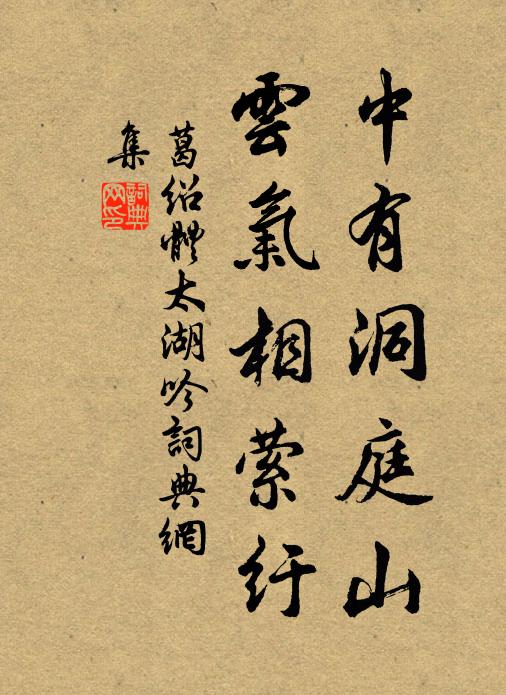 中有洞庭山
雲氣相縈紆
葛紹體太湖吟詞典網
集
詞典網印